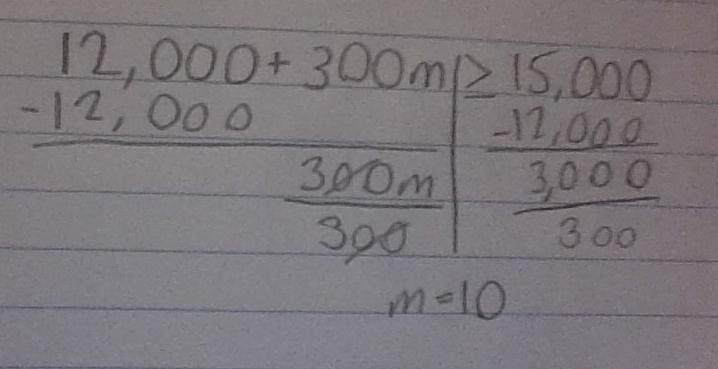 12,000 + 300m ≥ 15,000
-12,000 -12,000
300m 3,000
300 300
m=10